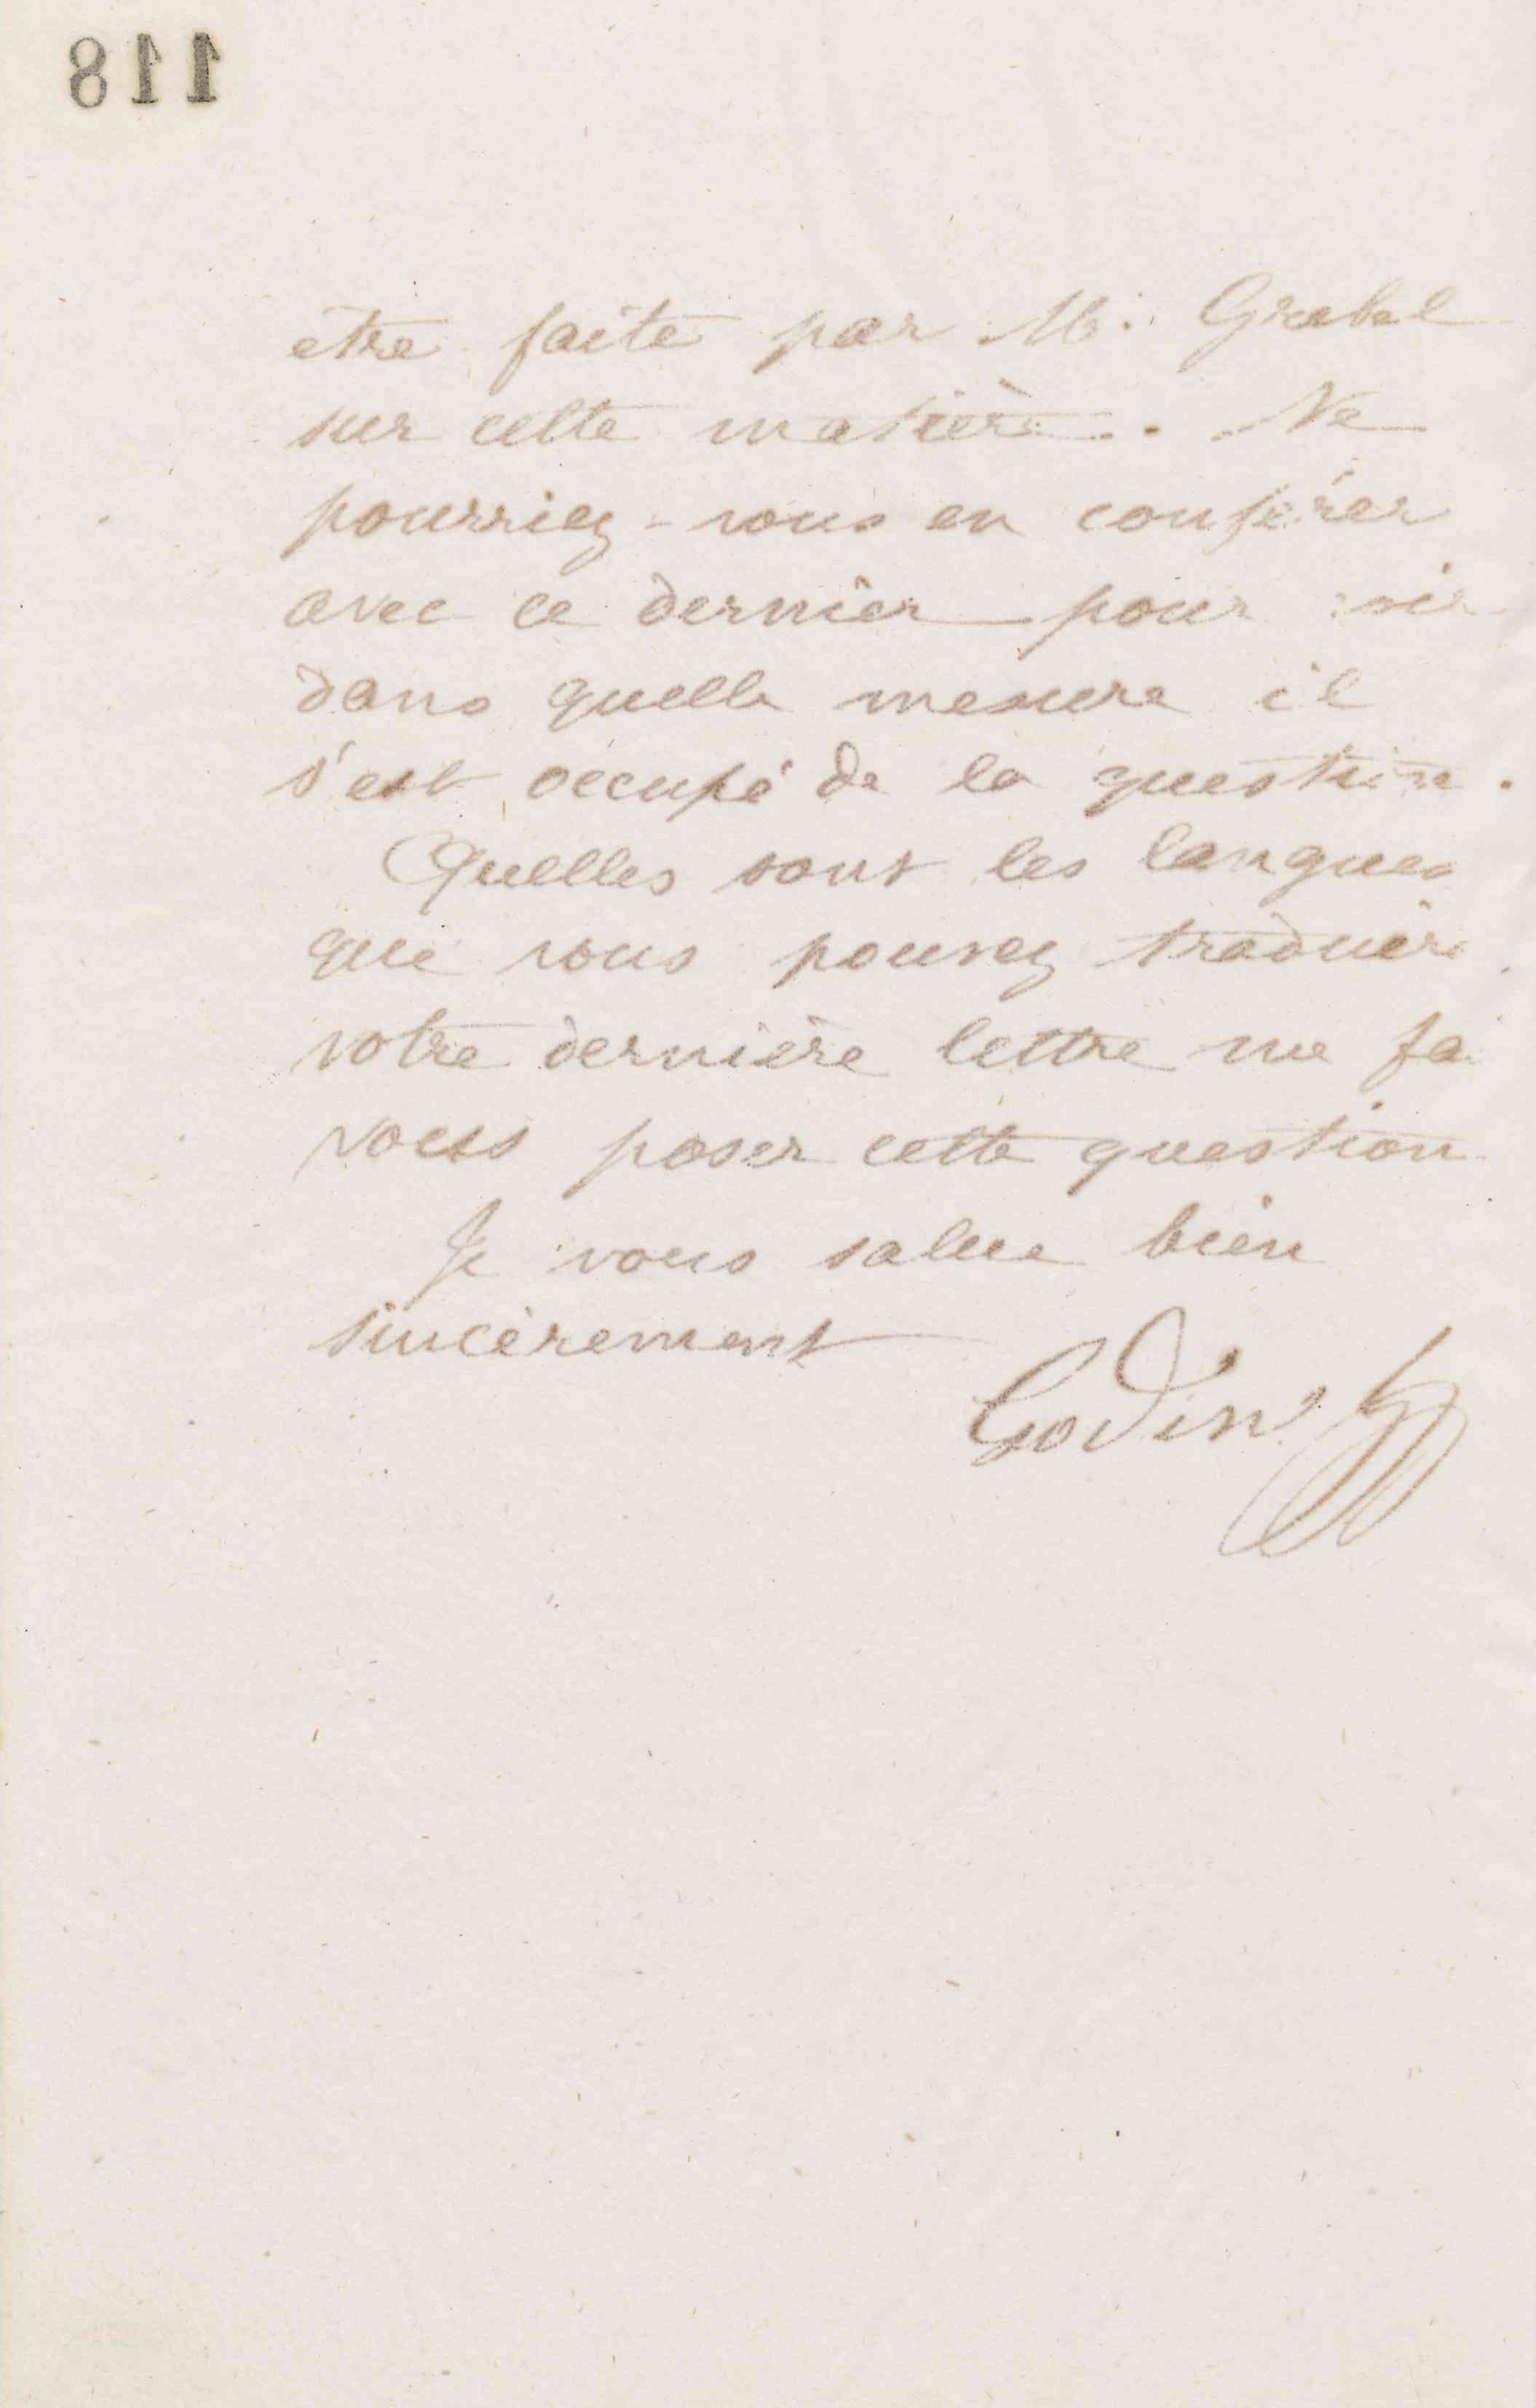 118
être faite par M. Grebel
sur cette matière. Ne
pourriez-vous en conférer
avec ce dernier pour voir
dans quelle mesure il
s'est occupé de la question.
Quelles sont les langues
que vous pouvez traduire
votre dernière lettre me fa
vous poser cette question
Je vous salue bien
sincèrement
Godin